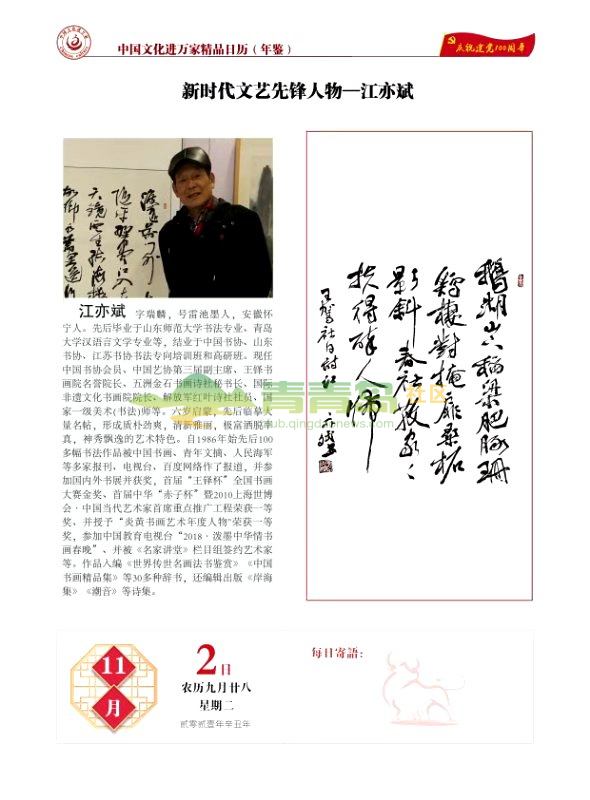 中国文化进万家精品日历（年鉴）
庆祝建党100周年
新时代文艺先锋人物—江亦斌
江亦斌 字瑞麟，号雷池墨人，安徽怀
宁人。先后毕业于山东师范大学书法专业、青岛
大学汉语言文学专业等，结业于中国书协、山东
书协、江苏书协书法专向培训班和高研班。现任
中国书协会员、中国艺协第三届副主席、王铎书
画院名誉院长、五洲金石书画诗社秘书长、国际
非遗文化书画院院长、解放军红叶诗社社员、国
家一级美术(书法)师等。六岁启蒙，先后临摹大
量名帖，形成质朴劲爽，清新雅丽，极富洒脱率
真，神秀飘逸的艺术特色。自1986年始先后100
多幅书法作品被中国书画、青年文摘、人民海军
等多家报刊，电视台、百度网络作了报道，并参
加国内外书展并获奖，首届“王铎杯”全国书画
大赛金奖、首届中华“赤子杯”暨2010上海世博
会·中国当代艺术家首席重点推广工程荣获一等
奖、并授予“炎黄书画艺术年度人物”荣获一等
奖，参加中国教育电视台“2018·泼墨中华情书
画春晚”、并被《名家讲堂》栏目组签约艺术家
等。作品入编《世界传世名画法书鉴赏》《中国
书画精品集》等30多种辞书，还编辑出版《岸海
集》《潮音》等诗集。
鹅湖山下稻粱肥豚珊
鸡栖对掩扉桑柘
影斜春社散家家
扶得醉人归
王驾社日诗
青青岛社区
club.qingdaonews.com
11
月
2日
农历九月廿八
星期二
贰零贰壹年辛丑年
每日寄语：